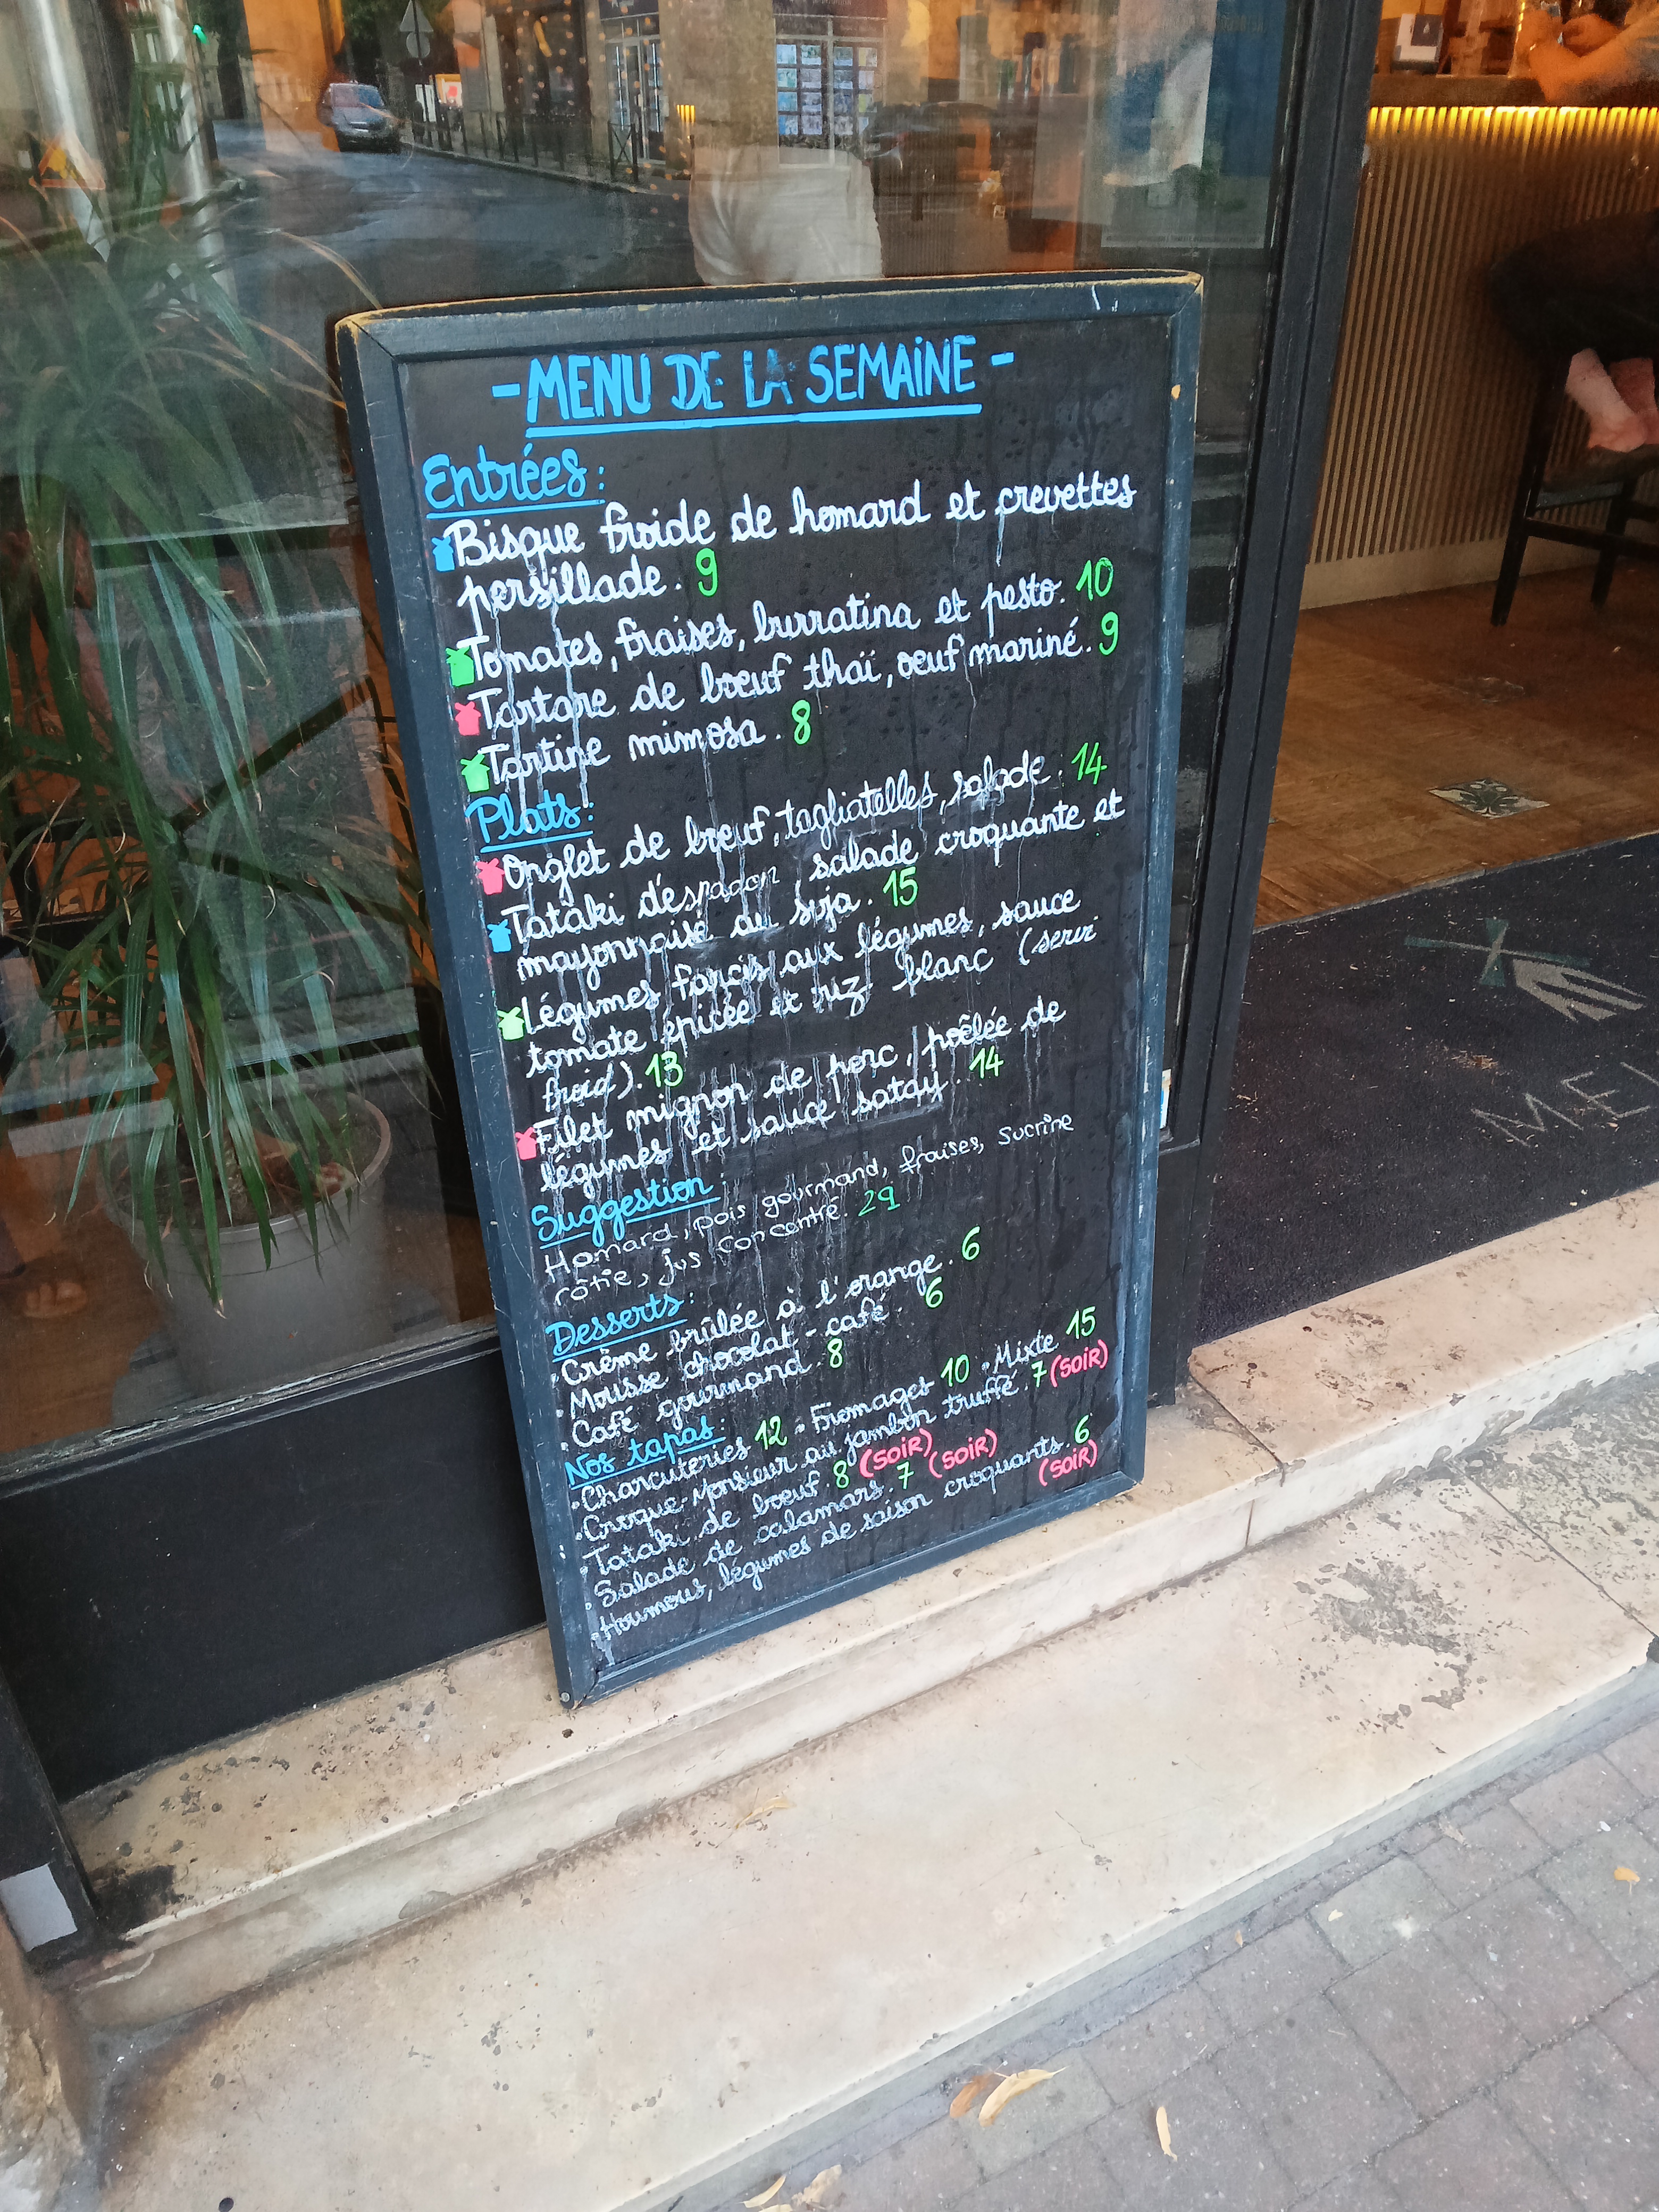 - MENU DE LA SEMAiNE -
Entrées :
Bisque froide de homard et crevettes
persillade. 9
Tomates, fraises, burratina et pesto. 10
Tartare de boeuf thaï, oeuf mariné. 9
Tartine mimosa. 8
Plats :
Onglet de boeuf, tagliatelles, salade. 14
Tataki d'espadon salade croquante et
mayonnaise au soja. 15
Légumes farcis aux légumes, sauce
tomate épicée et riz blanc (servi
froid). 13
Filet mignon de porc, poêlée de
légumes et sauce satay. 14
Suggestion :
Homard, pois gourmand, fraises, sucrine
rôtie, jus concentré. 29
Desserts :
. Crème brûlée à l'orange. 6
. Mousse chocolat - café. 6
. Café gourmand. 8
Nos tapas :
. Charcuteries 12 . Fromages 10 . Mixte 15
. Croque-Monsieur au jambon truffé. 7 (SOiR)
. Tataki de boeuf. 8 (SOiR)
. Salade de calamars. 7 (SOiR)
. Houmous, légumes de saison croquants. 6
(SOiR)